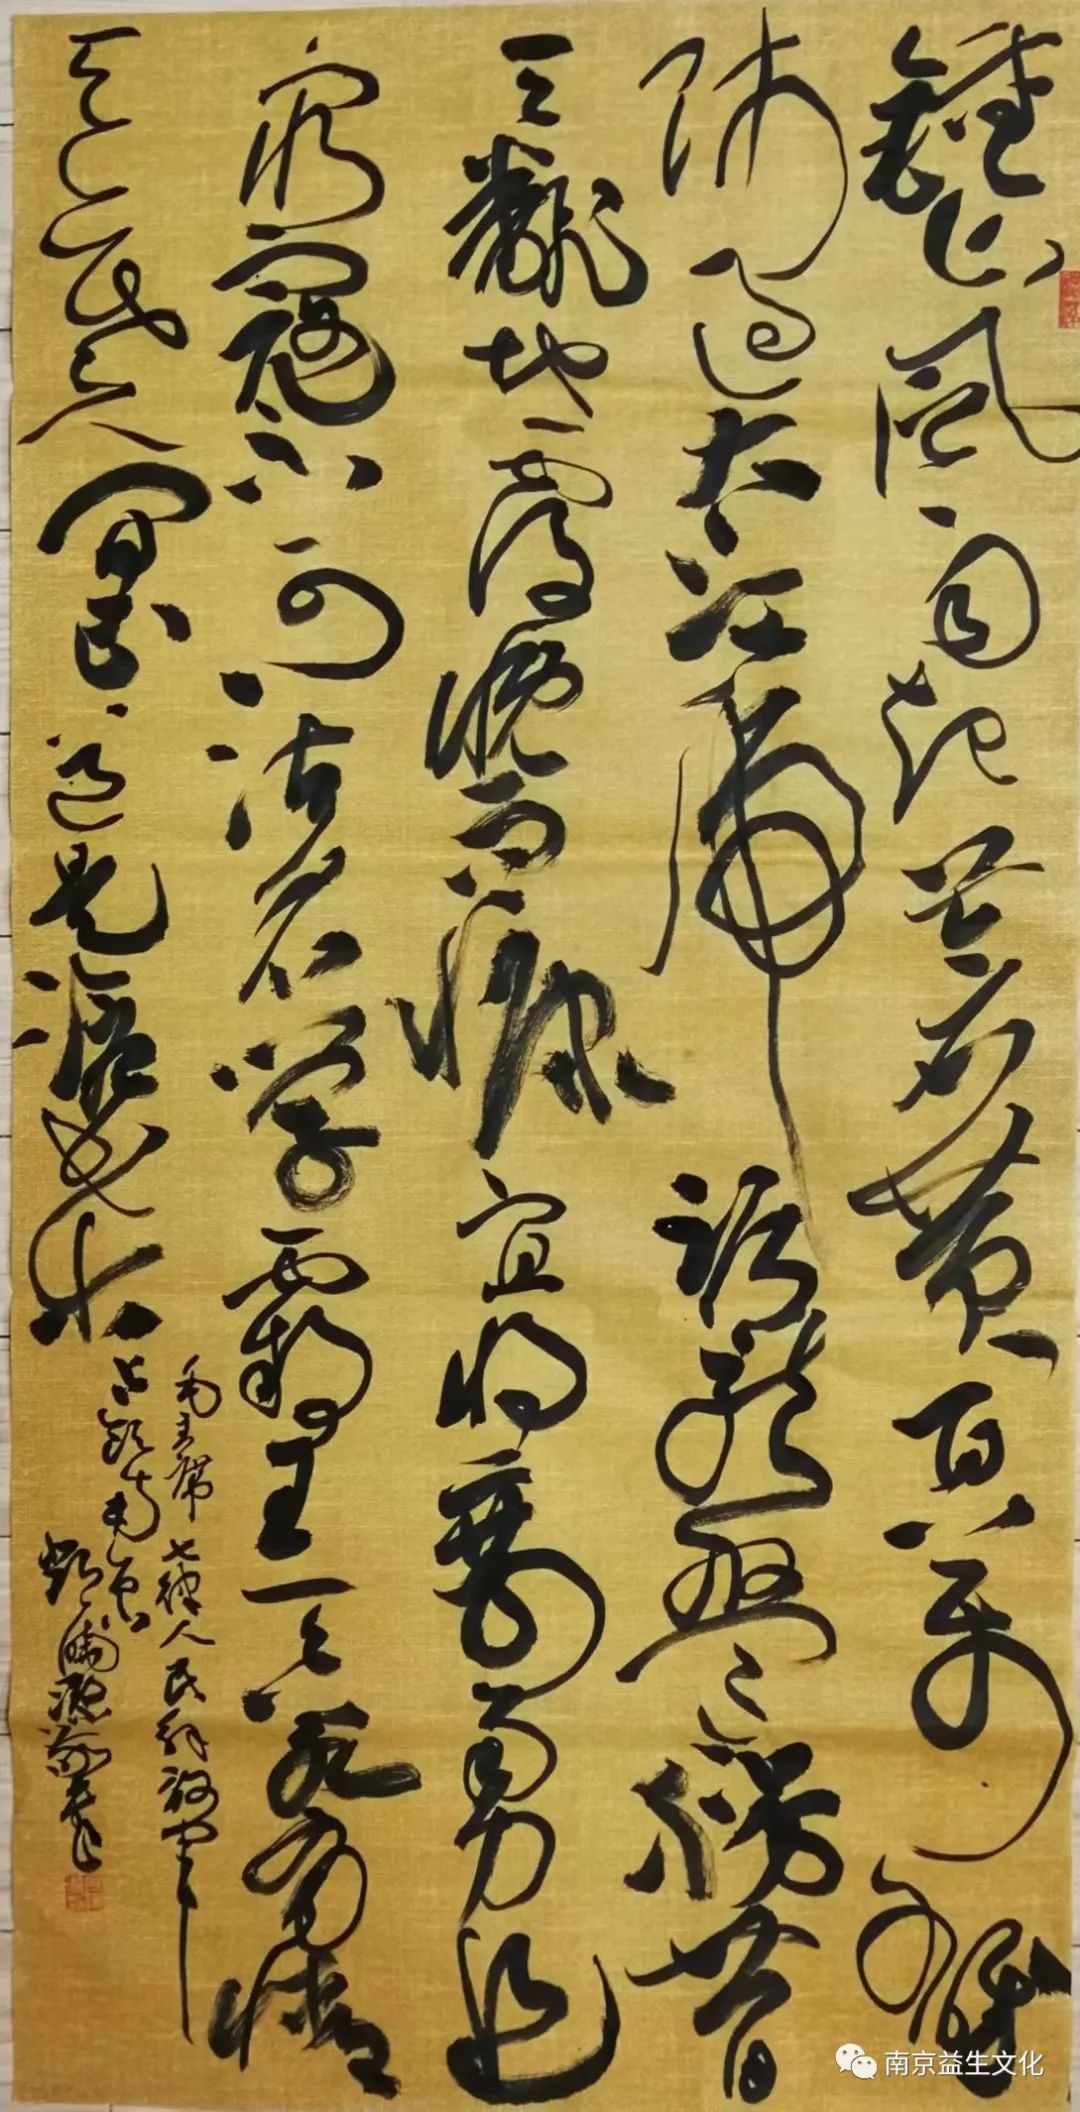 鍾山風雨起蒼黄百万雄
师過大江虎踞龍盤今勝昔
天翻地覆慨而慷宜将剩勇追
窮寇不可沽名学霸王天若有情
天亦老人间正道是滄桑
毛主席七律人民解放军
占领南京
南京益生文化